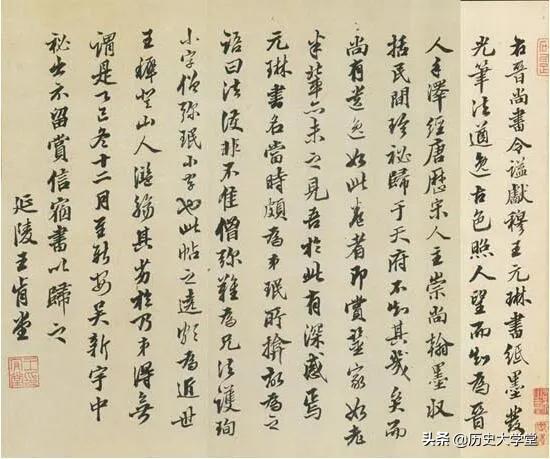 右晉尚書令謚獻穆王元琳書紙墨發
光筆法遒逸古色照人望而知為晉
人手澤經唐歷宋人主崇尚翰墨收
括民間珍秘歸于天府不知其幾矣而
尚有遺逸如此卷者即賞鑒家如老
米輩亦未之見吾於此有深感焉
元琳書名當時頗為弟珉所掩故為之
語曰法護非不佳僧彌難為兄法護珣
小字僧彌珉小字也此帖之遒媚為近世
王穉登山人濫觴其劣於乃弟得無
謂是乙巳冬十二月至新安吳新宇中
秘出示留賞信宿書以歸之
延陵王肯堂
头条 @历史大学堂